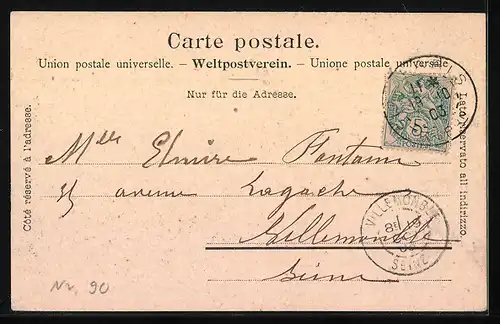 Carte postale.
Union postale universelle. – Weltpostverein. – Unione postale universale
Nur für die Adresse.
Côté réservé à l'adresse.
Lato riservato all'indirizzo
Mlle Elmire Fontaine
avenue Lagache
Villemomble
Seine
VILLEMOMBLE
SEINE
Nr. 90